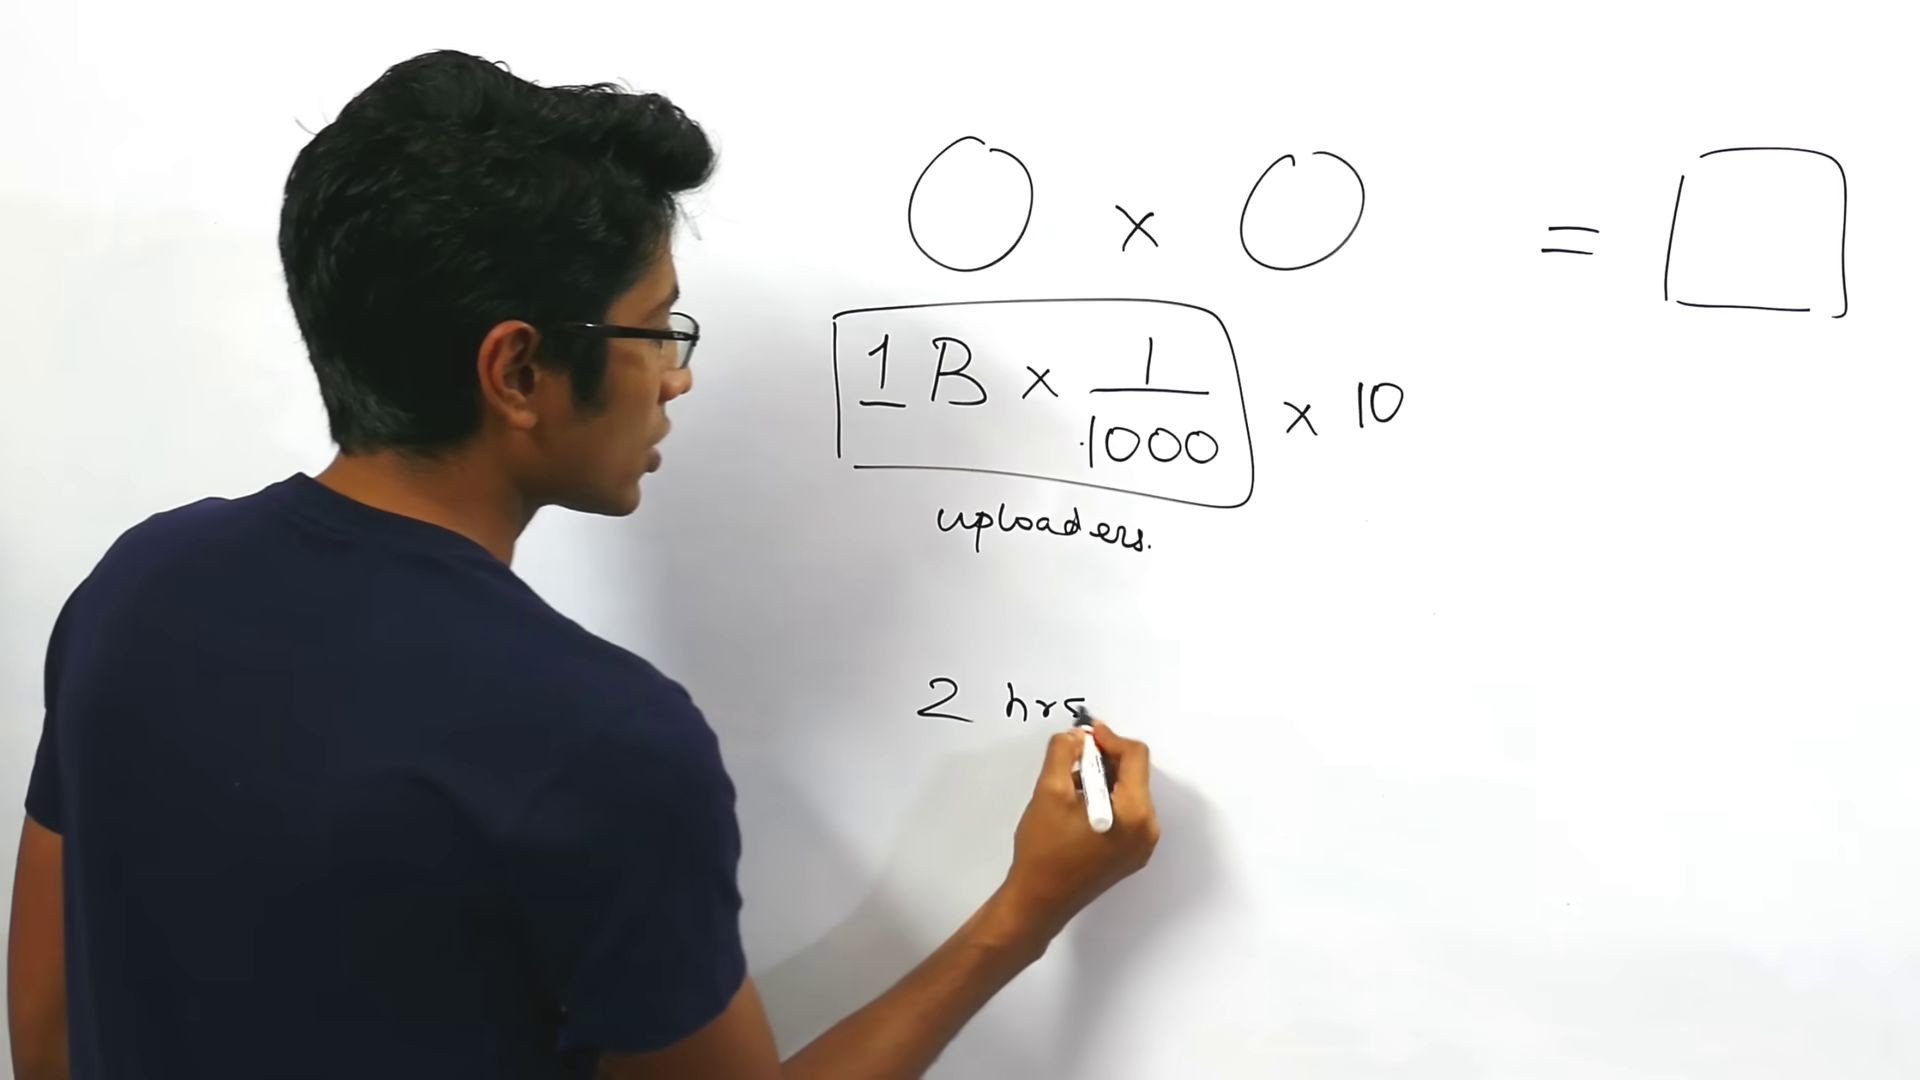 × =
1 B × 1/1000 × 10
uploaders.
2 hrs